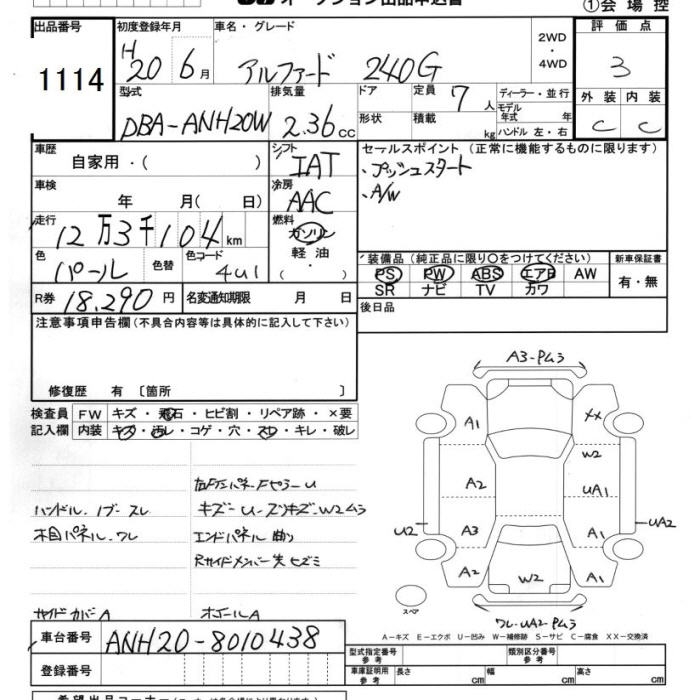 オークション出品申込書 ①会場控
出品番号 初度登録年月 車名・グレード 評価点
1114 H20 6月 アルファード 240G 2WD・4WD 3
型式 排気量 ドア 定員 7人 ディーラー・並行 外装 内装
DBA-ANH20W 2.36cc 形状 積載 kg モデル年式 年 ハンドル 左・右 C C
車歴 自家用・( ) シフト IAT セールスポイント (正常に機能するものに限ります)
・プッシュスタート
車検 年 月( 日) 冷房 AAC ・A/W
走行 12万3千104km 燃料 ガソリン
軽油
・( )
色 パール 色替 色コード 4u1 装備品(純正品に限り○をつけてください) 新車保証書
PS PW ABS エアB AW 有・無
SR ナビ TV カワ
R券 18.290円 名変通知期限 月 日 後日品
注意事項申告欄(不具合内容等は具体的に記入して下さい)
修復歴 有 [箇所 ]
検査員 FW キズ・飛石・ヒビ割・リペア跡・×要
記入欄 内装 キズ・汚レ・コゲ・穴・スレ・キレ・破レ
ハンドル.ノブースレ
木目パネル.ワレ
キズーU-ズツキズ-W2ム3
エンドパネル 曲り
Rサイドメンバー先 ヒズミ
サイドカバーA
ホイールA
A3-Pム3
A1 XX
W2
A2 UA1
U2 A3 A1 UA2
A2 W2 A1
スペア
ワレ-UA2-Pム3
A-キズ E-エクボ U-凹み W-補修跡 S-サビ C-腐食 XX-交換済
車台番号 ANH20-8010438
登録番号
型式指定番号 参考 類別区分番号 参考
車庫証明用 参考 長さ cm 幅 cm 高さ cm